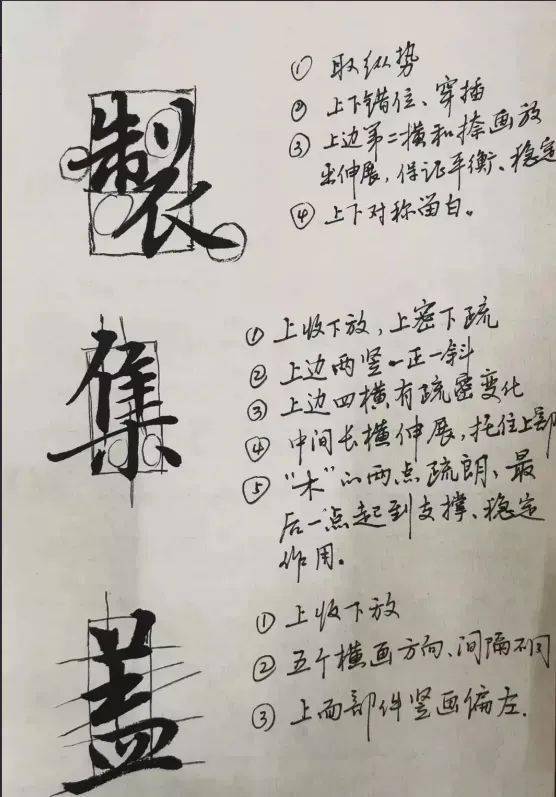 製
① 取纵势
② 上下错位、穿插
③ 上边第二横和捺画放
出伸展，保证平衡、稳定
④ 上下对称留白。
集
① 上收下放，上密下疏
② 上边两竖一正一斜
③ 上边四横有疏密变化
④ 中间长横伸展，托住上部
⑤ “木”的两点疏朗、最
后一点起到支撑、稳定
作用。
盖
① 上收下放
② 五个横画方向、间隔不同
③ 上面部件竖画偏左.